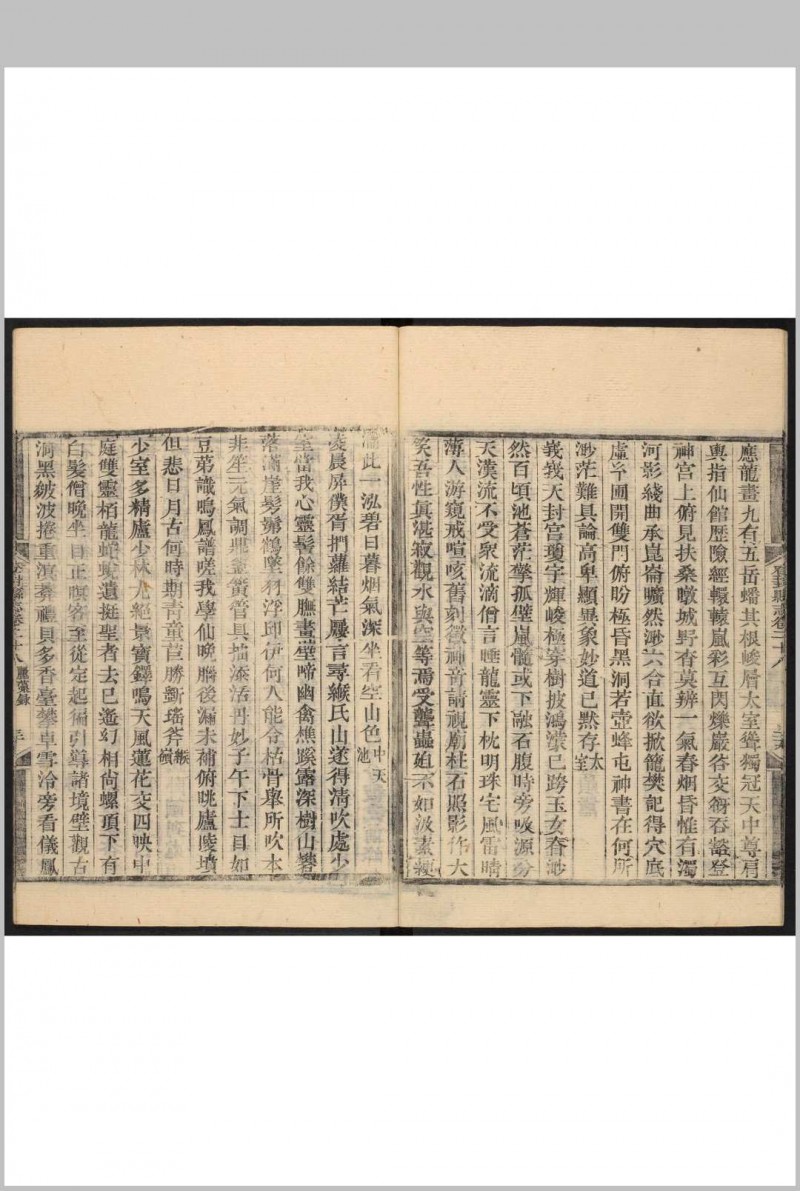 應龍畫九有五岳蟠其根峻層太室聳獨冠天中尊肩
輿指仙館歷險經轘轅嵐彩互閃爍巖谷交翕吞豁登
神宮上俯見扶桑暾城野杳莫辨一氣春烟昏惟有濁
河影綫曲承崑崙曠然渺六合直欲掀籠樊記得穴底
虛孚圃開雙門俯盼極昏黑洞若壺蜂屯神書在何所
渺茫難具論高卑顯異象妙道已默存太室
峩峩天封宮瓊宇輝峻極穿樹披鴻濛已跨玉女脊渺
然百頃池蒼茫擎孤壁嵐髓或下融石腹時旁吸源分
天漢流不受衆流滴僧言睡龍靈下枕明珠宅風雷晴
薄人游窺戒喧咳舊刻徵神音請視廟柱石照影作大
笑吾性眞湛寂觀水與空等焉受聾蟲廹不如汲素綆
瀹此一泓碧日暮烟氣深坐看空山色中天池
凌晨屏僕胥捫蘿結芒屩言尋緱氏山遂得淸吹處少
室當我心靈髻餘雙嫵畫壁啼幽禽樵蹊露深樹山磬
落滿崖髣髴鶴墜羽浮邱伊何人能令枯骨舉所吹本
非笙元氣調鼎盉簧管具描添活丹妙子午下士目如
豆弟識鳴鳳譜嗟我學仙晚腦後漏未補俯眺廬陵墳
但悲日月古何時期靑童苣勝斵瑤斧緱嶺
少室多精廬少林尤絕景寶鐸鳴天風蓮花交四映中
庭雙靈栢龍蛇蛻遺挺聖者去已遙幻相尙螺頂下有
白髮僧晚坐目正瞑客至從定起徧引導諸境壁觀古
洞黑皴波捲重溟葬禮貝多香臺攀卓雪冷旁看儀鳳